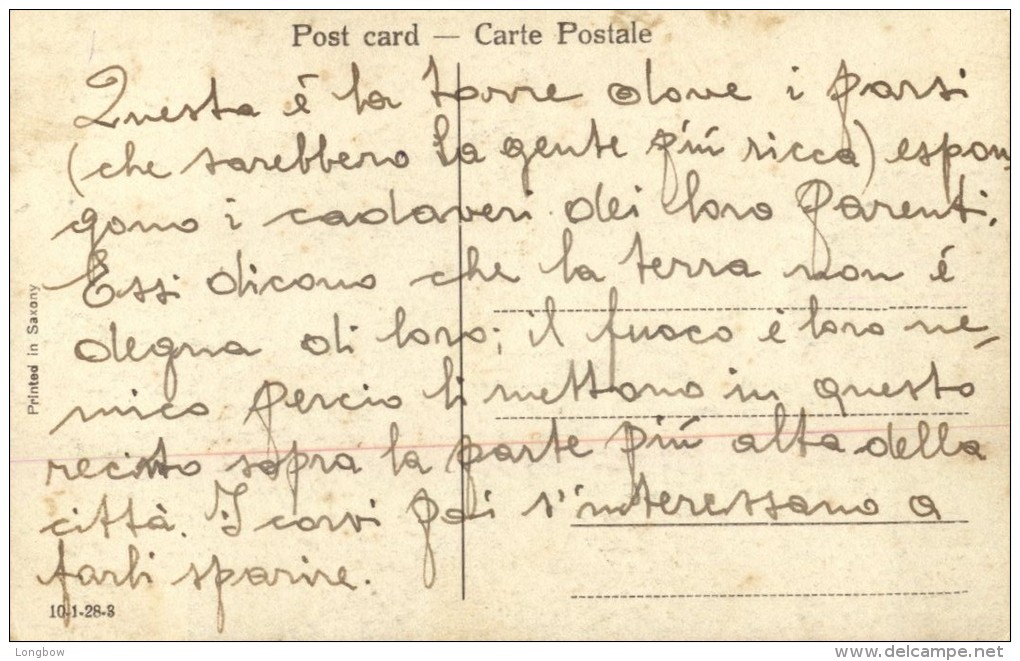 Post card — Carte Postale
Questa é la torre dove i parsi
(che sarebbero la gente piú ricca) espon,
gono i cadaveri dei loro parenti.
Essi dicono che la terra non é
degna di loro; il fuoco é loro ne-
mico perció li mettono in questo
recinto sopra la parte piú alta della
città. I corvi poi s'interessano a
farli sparire.
Printed in Saxony
10-1-28-3
Longbow
delcampe.net